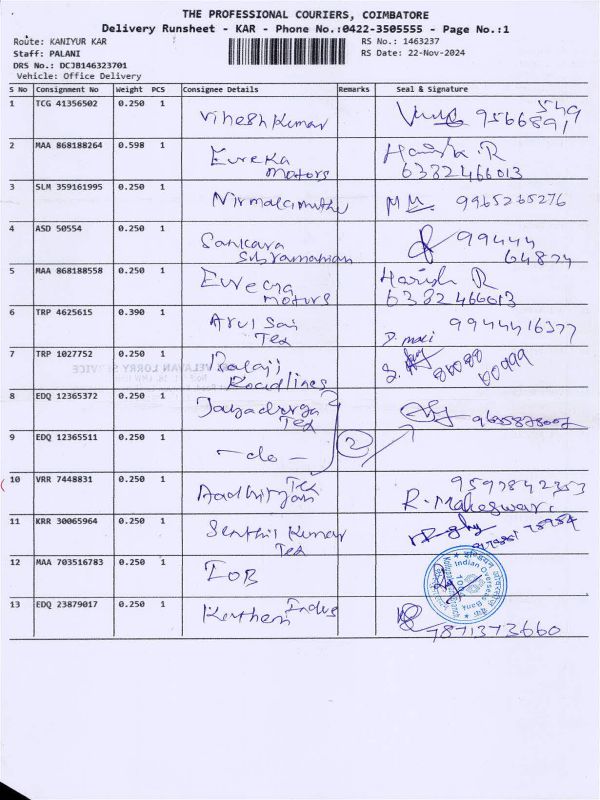 THE PROFESSIONAL COURIERS, COIMBATORE
Delivery Runsheet - KAR - Phone No.:0422-3505555 - Page No.:1
Route: KANIYUR KAR RS No.: 1463237
Staff: PALANI RS Date: 22-Nov-2024
DRS No.: DCJB146323701
Vehicle: Office Delivery
S No Consignment No Weight PCS Consignee Details Remarks Seal & Signature
1 TCG 41356502 0.250 1 Vihesh Kumar 9566891 549
2 MAA 868188264 0.598 1 Eureka Motors Harish.R 6382466013
3 SLM 359161995 0.250 1 Nirmalamuthu 9965265276
4 ASD 50554 0.250 1 Sankara Subramanian 99444 64874
5 MAA 868188558 0.250 1 Eureca Motors Harish R 6382466013
6 TRP 4625615 0.390 1 Arul Sai Tex D. mari 9944416377
7 TRP 1027752 0.250 1 Balaji Roadlines
8 EDQ 12365372 0.250 1 Jayadurga Tex
9 EDQ 12365511 0.250 1 - do - 2
10 VRR 7448831 0.250 1 Aadhityan Tex 9597842353 R. Maheswari
11 KRR 30065964 0.250 1 Senthil Kumar Tex
12 MAA 703516783 0.250 1 IOB Indian Overseas Bank
13 EDQ 23879017 0.250 1 Indus 7871373660